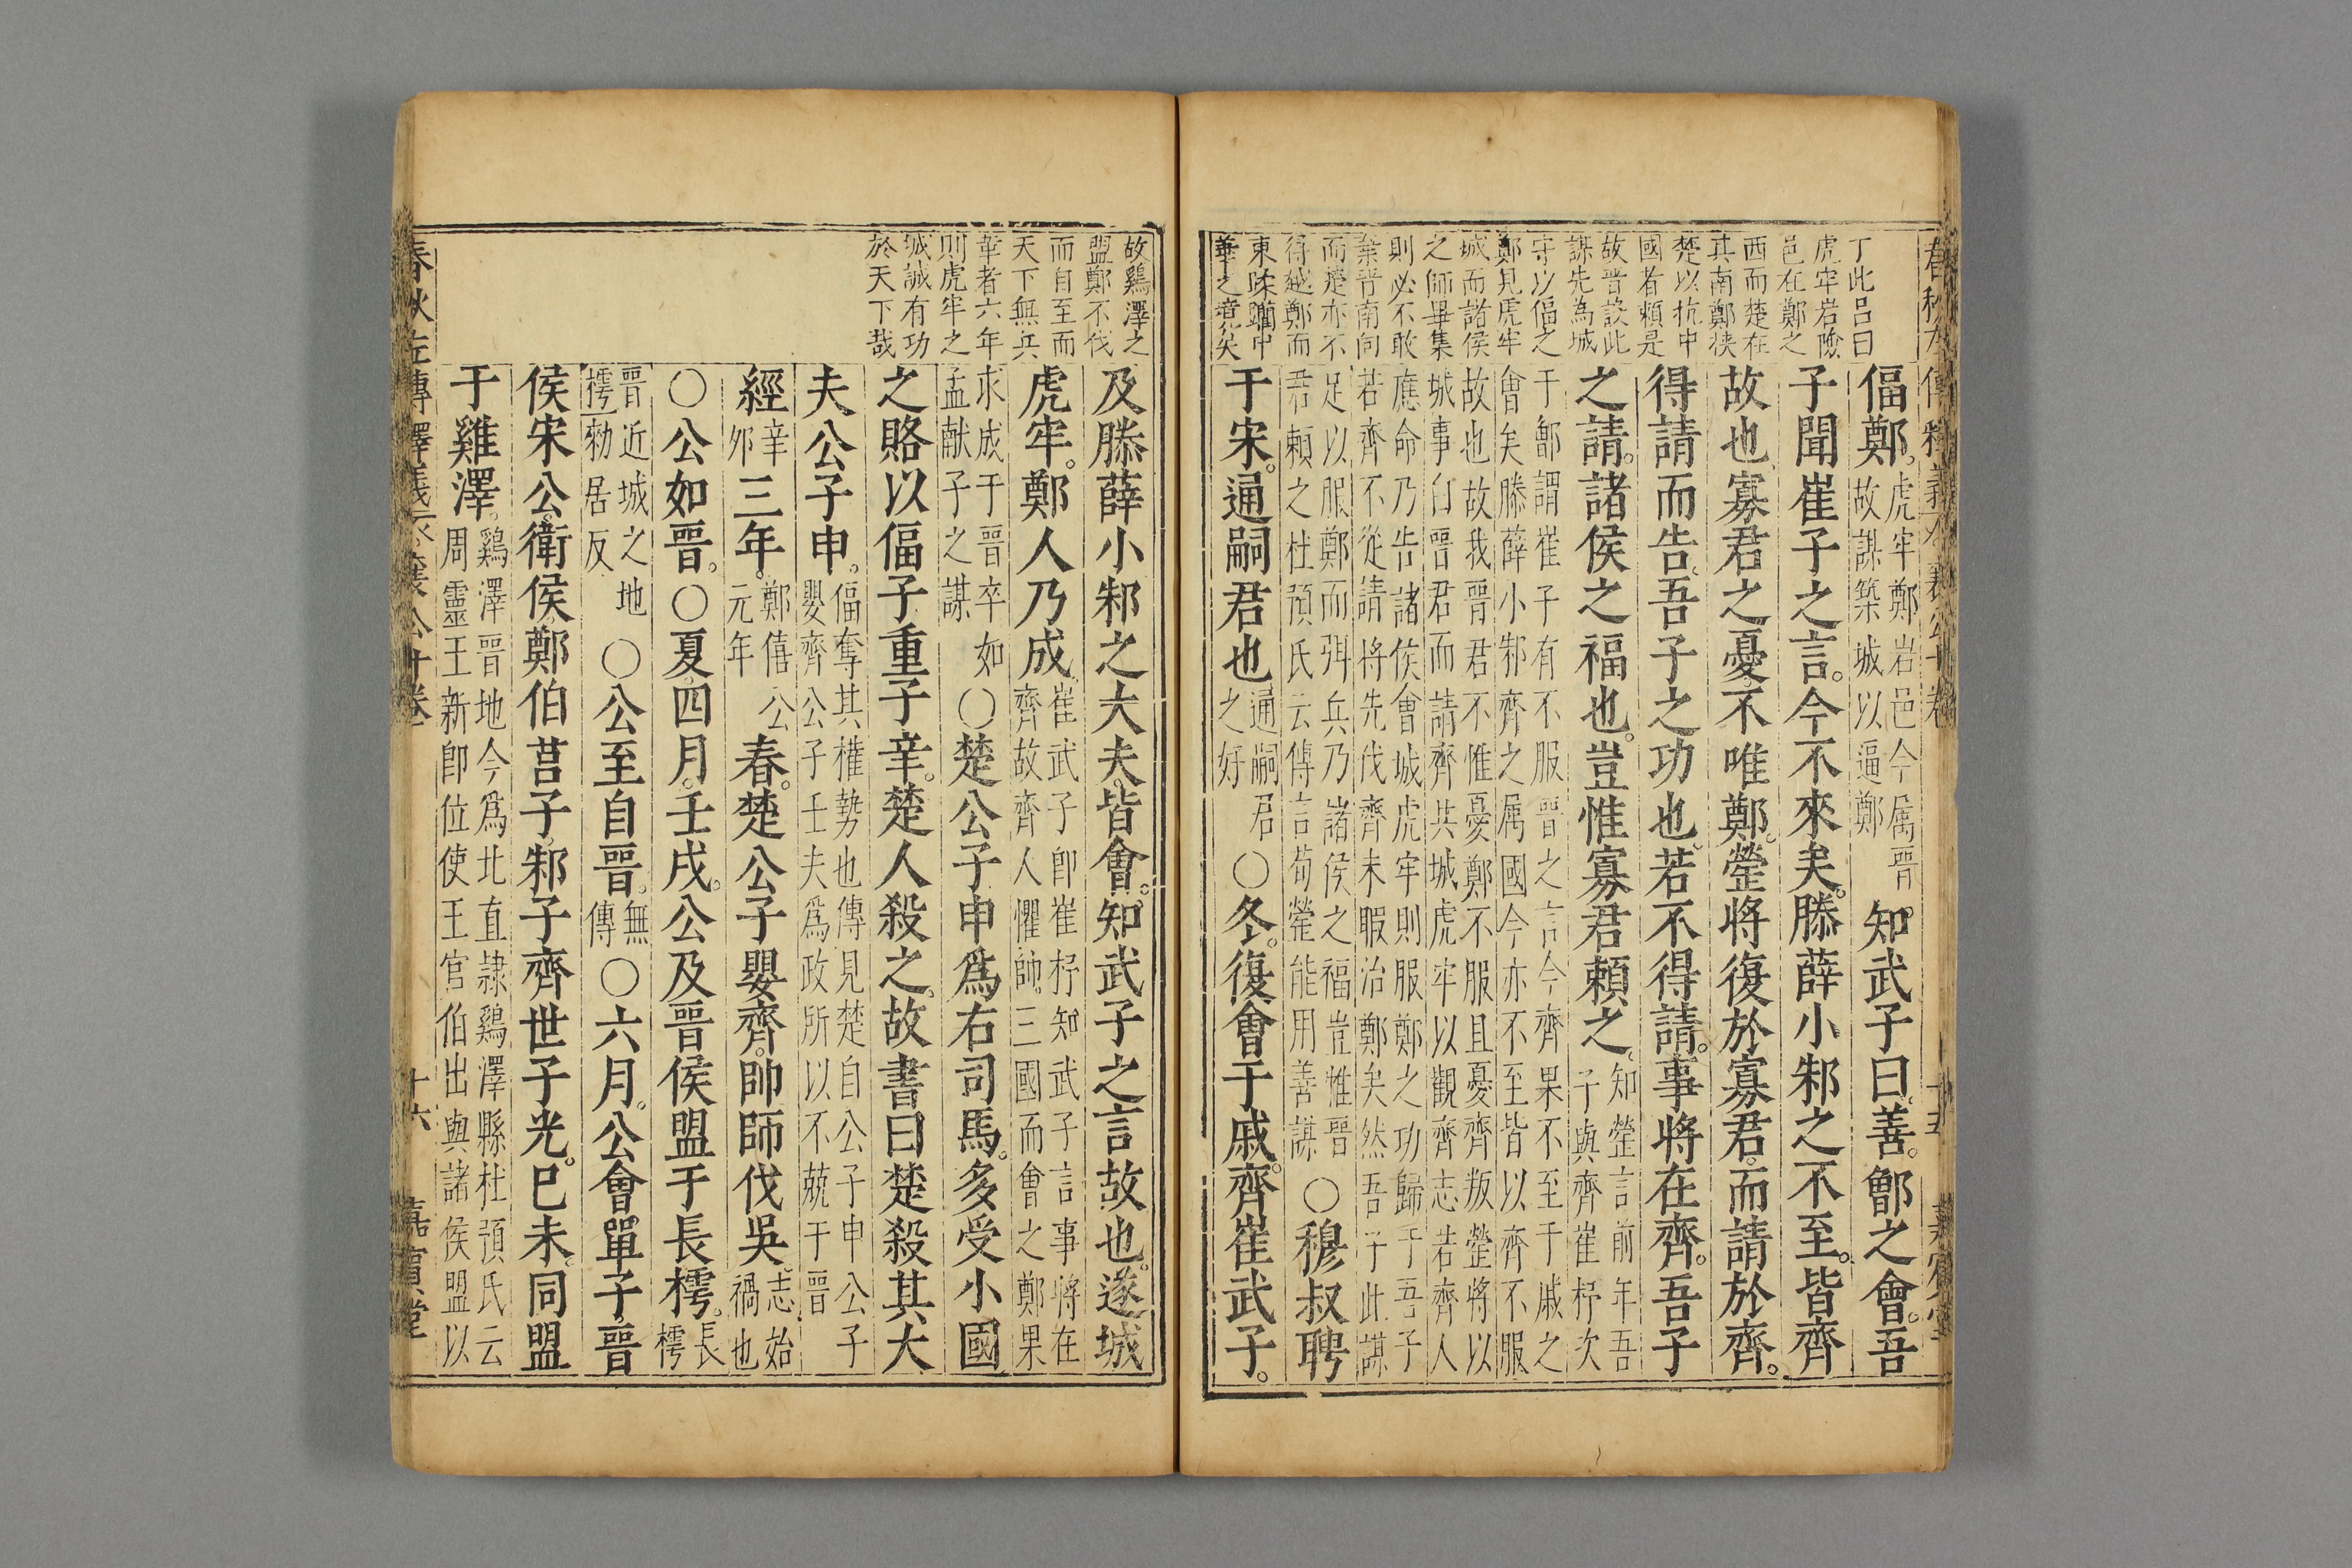 丁此吕曰
虎牢岩險
邑在鄭之
西而楚在
其南鄭挟
楚以抗中
國者頼是
故晋設此
謀先為城
守以偪之
鄭見虎牢
城而諸侯
之師畢集
則必不敢
棄晋南向
而楚亦不
得越鄭而
東蹂躪中
華之音矣
偪鄭虎牢鄭岩邑今属晋
故謀築城以逼鄭知武子曰善鄫之會吾
子聞崔子之言今不來矣滕薛小邾之不至皆齊
故也寡君之憂不唯鄭罃將復於寡君而請於齊
得請而告吾子之功也若不得請事將在齊吾子
之請諸侯之福也豈惟寡君頼之知罃言前年吾
子與齊崔杼次
于鄫謂崔子有不服晋之言今齊果不至于戚之
會矣滕薛小邾齊之属國今亦不至皆以齊不服
故也故我晋君不惟憂鄭不服且憂齊叛罃將以
城事白晋君而請齊共城虎牢以觀齊志若齊人
應命乃告諸侯會城虎牢則服鄭之功歸于吾子
若齊不從請將先伐齊未暇治鄭矣然吾子此謀
足以服鄭而弭兵乃諸侯之福豈惟晋
君頼之杜預氏云傳言荀罃能用善謀〇穆叔聘
于宋通嗣君也通嗣君
之好〇冬復會于戚齊崔武子
故鷄澤之
盟鄭不伐
而自至而
天下無兵
革者六年
則虎牢之
城誠有功
於天下哉
及滕薛小邾之大夫皆會知武子之言故也遂城
虎牢鄭人乃成崔武子即崔杼知武子言事將在
齊故齊人懼帥三國而會之鄭果
求成于晋卒如
孟献子之謀〇楚公子申爲右司馬多受小國
之賂以偪子重子辛楚人殺之故書曰楚殺其大
夫公子申偪奪其權勢也傳見楚自公子申公子
嬰齊公子壬夫爲政所以不兢于晋
經辛
夘三年鄭僖公
元年春楚公子嬰齊帥師伐吳志始
禍也
〇公如晋〇夏四月壬戌公及晋侯盟于長樗長
樗
晋近城之地
樗勑居反〇公至自晋無
傳〇六月公會單子晋
侯宋公衛侯鄭伯莒子邾子齊世子光巳未同盟
于雞澤鷄澤晋地今爲北直隷鷄澤縣杜預氏云
周靈王新即位使王官伯出與諸侯盟以
春秋左傳釋義 襄公十卷 十六 嘉賓堂